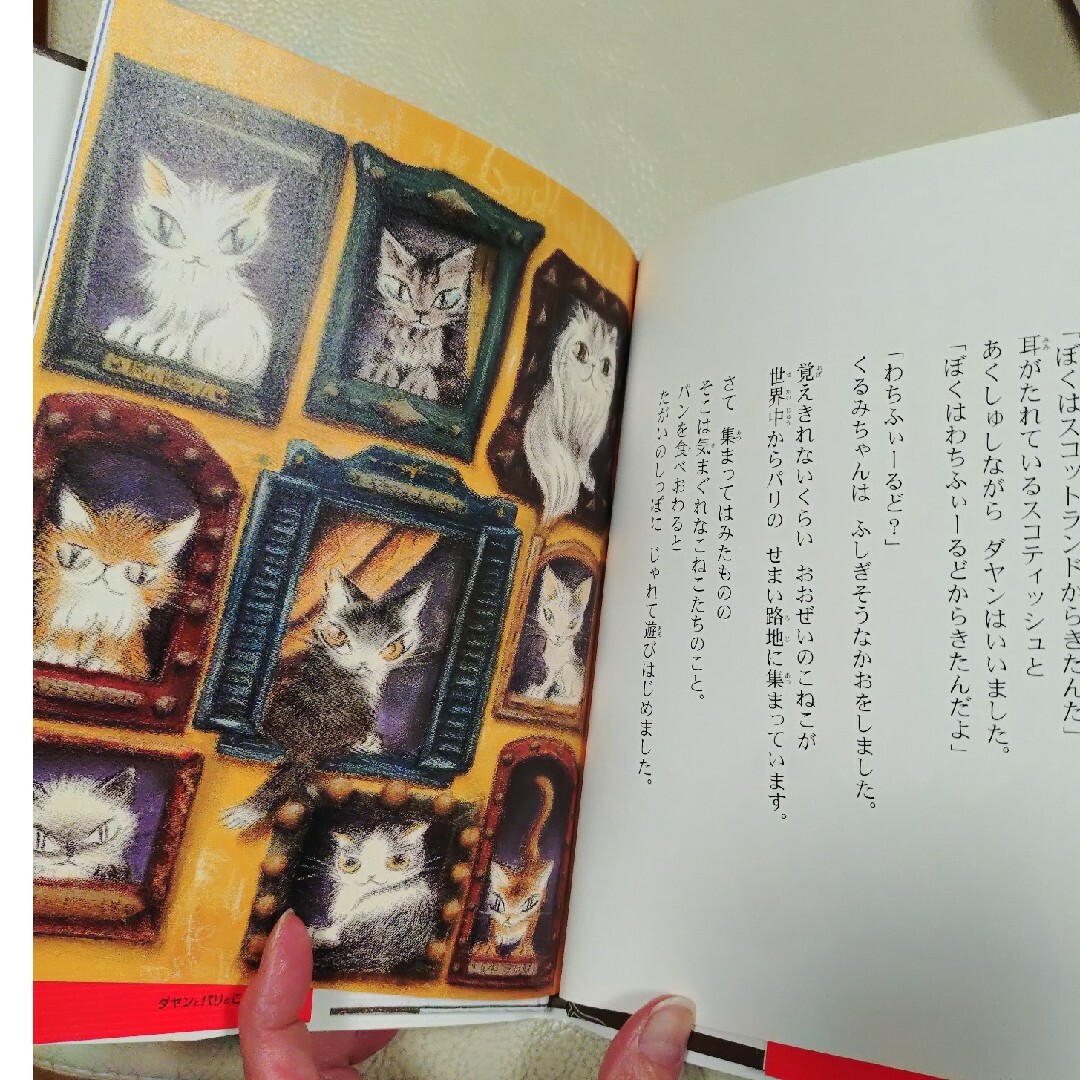 「ぼくはスコットランドからきたんだ」
耳がたれているスコティッシュと
あくしゅしながら ダヤンはいいました。
「ぼくはわちふぃーるどからきたんだよ」
「わちふぃーるど？」
くるみちゃんは ふしぎそうなかおをしました。
覚えきれないくらい おおぜいのこねこが
世界中からパリの せまい路地に集まっています。
さて 集まってはみたものの
そこは気まぐれなこねこたちのこと。
パンを食べおわると
たがいのしっぽに じゃれて遊びはじめました。
ダヤンとパリのこ